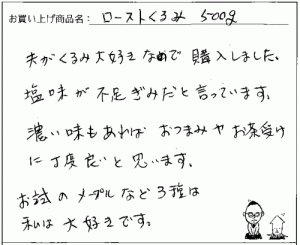 お買い上げ商品名： ローストくるみ 500g
夫がくるみ大好きなので購入しました。
塩味が不足ぎみだと言っています。
濃い味もあれば おつまみや お茶受け
に丁度良いと思います。
お試のメープルなど3種は
私は大好きです。